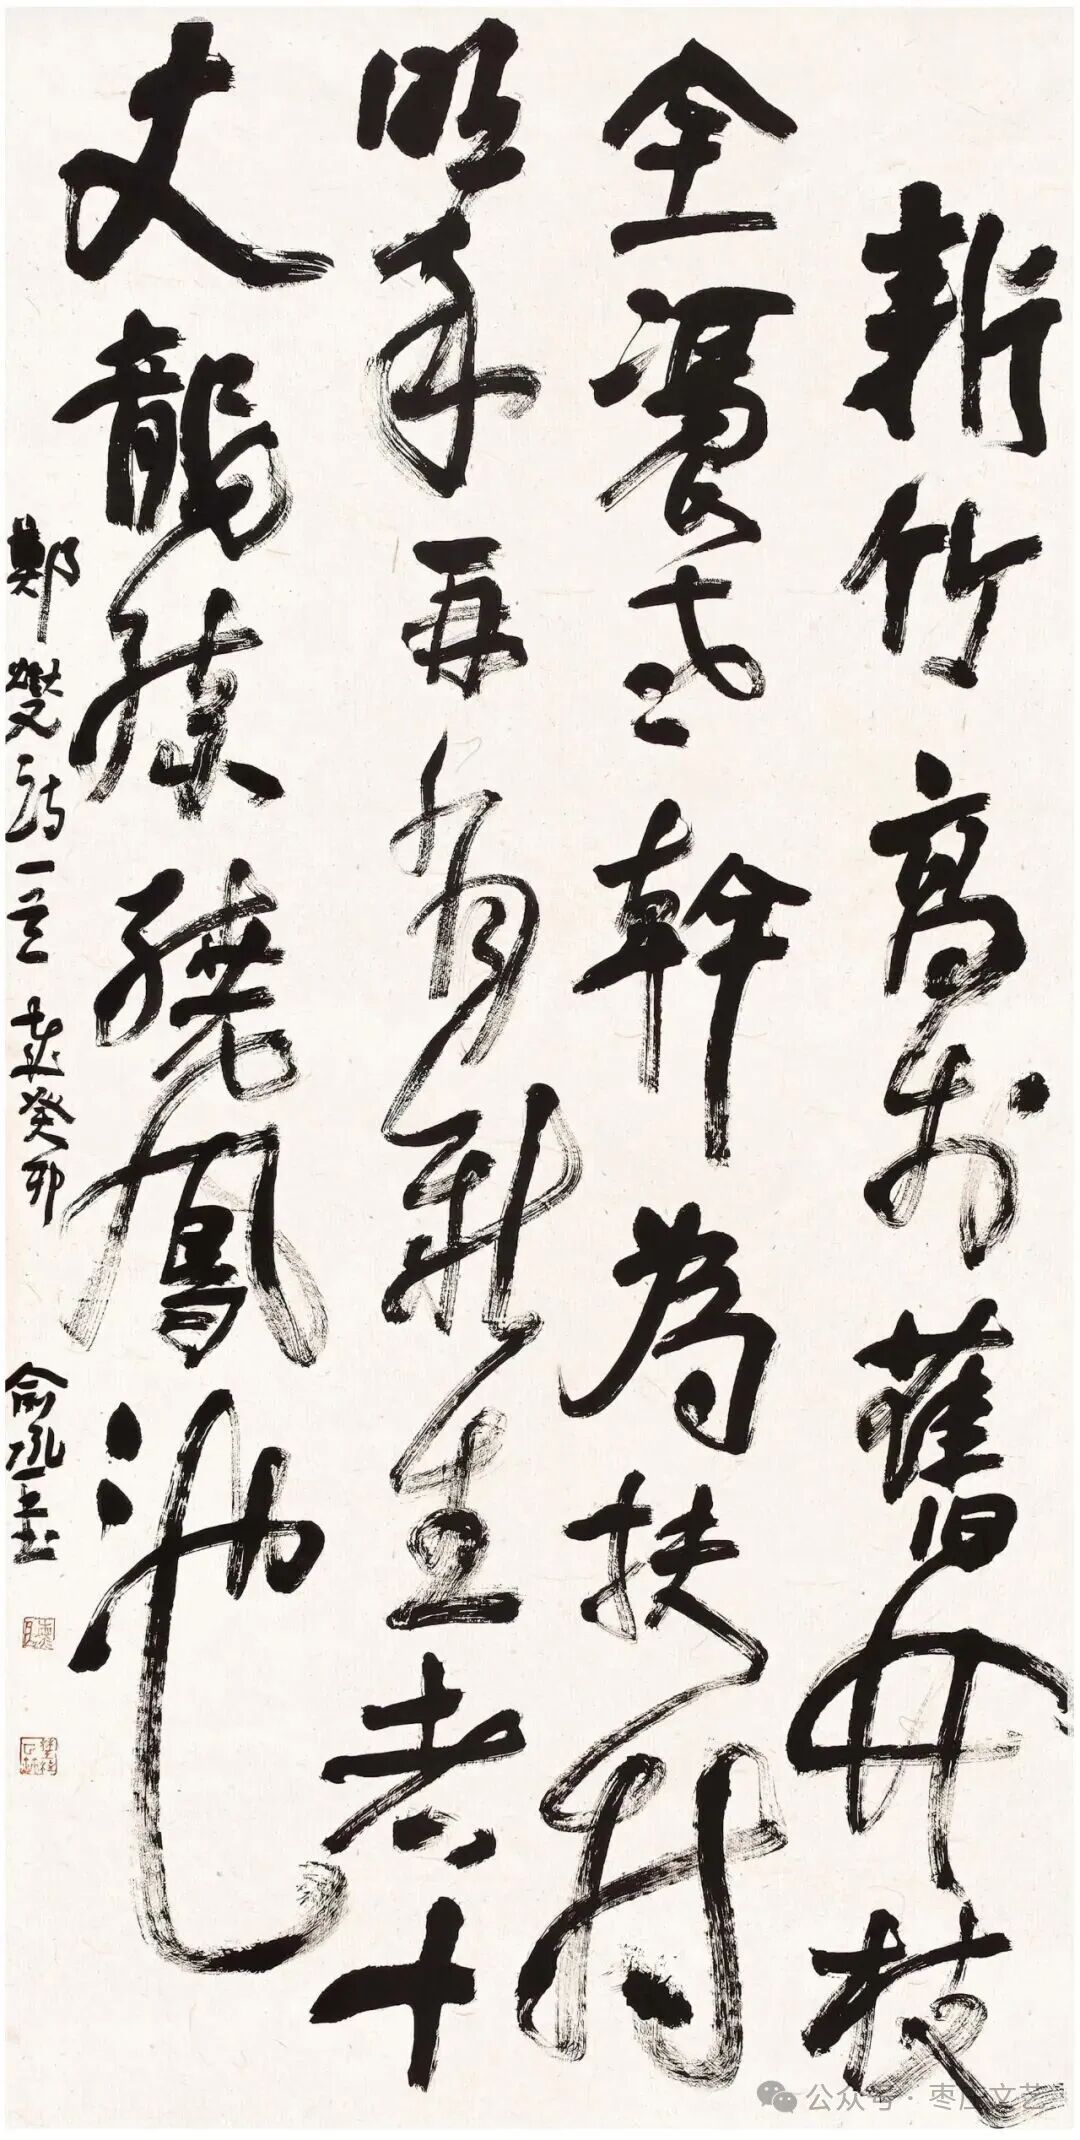 新竹高於舊竹枝
全憑老幹為扶持
明年再有新生者十
丈龍孫繞鳳池
鄭燮詩一首 歲癸卯 俞
公众号 · 枣庄文艺